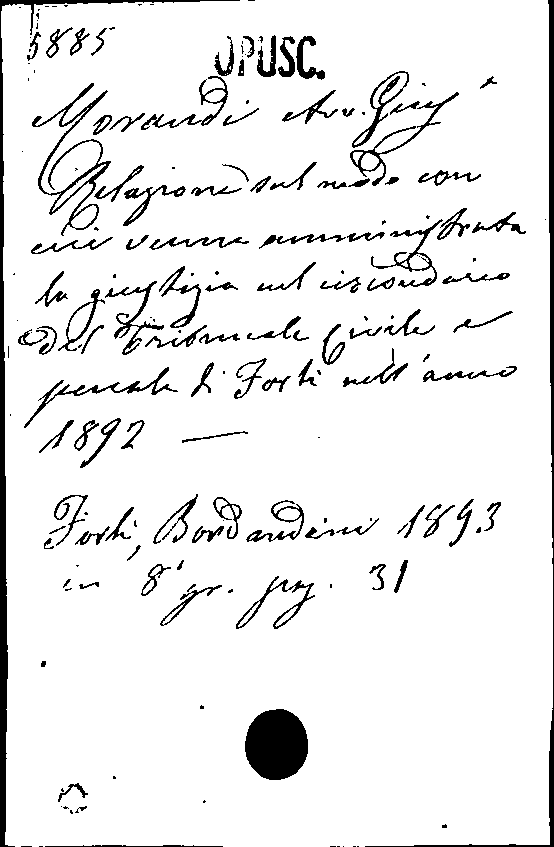 5885
OPUSC.
Morandi Avv. Giusˢ
Relazione sul modo con
cui venne amministrata
la giustizia nel circondario
del Tribunale Civile e
penale di Forlì nell'anno
1892 —
Forlì, Bordandini 1893
in 8° gr. pag. 31